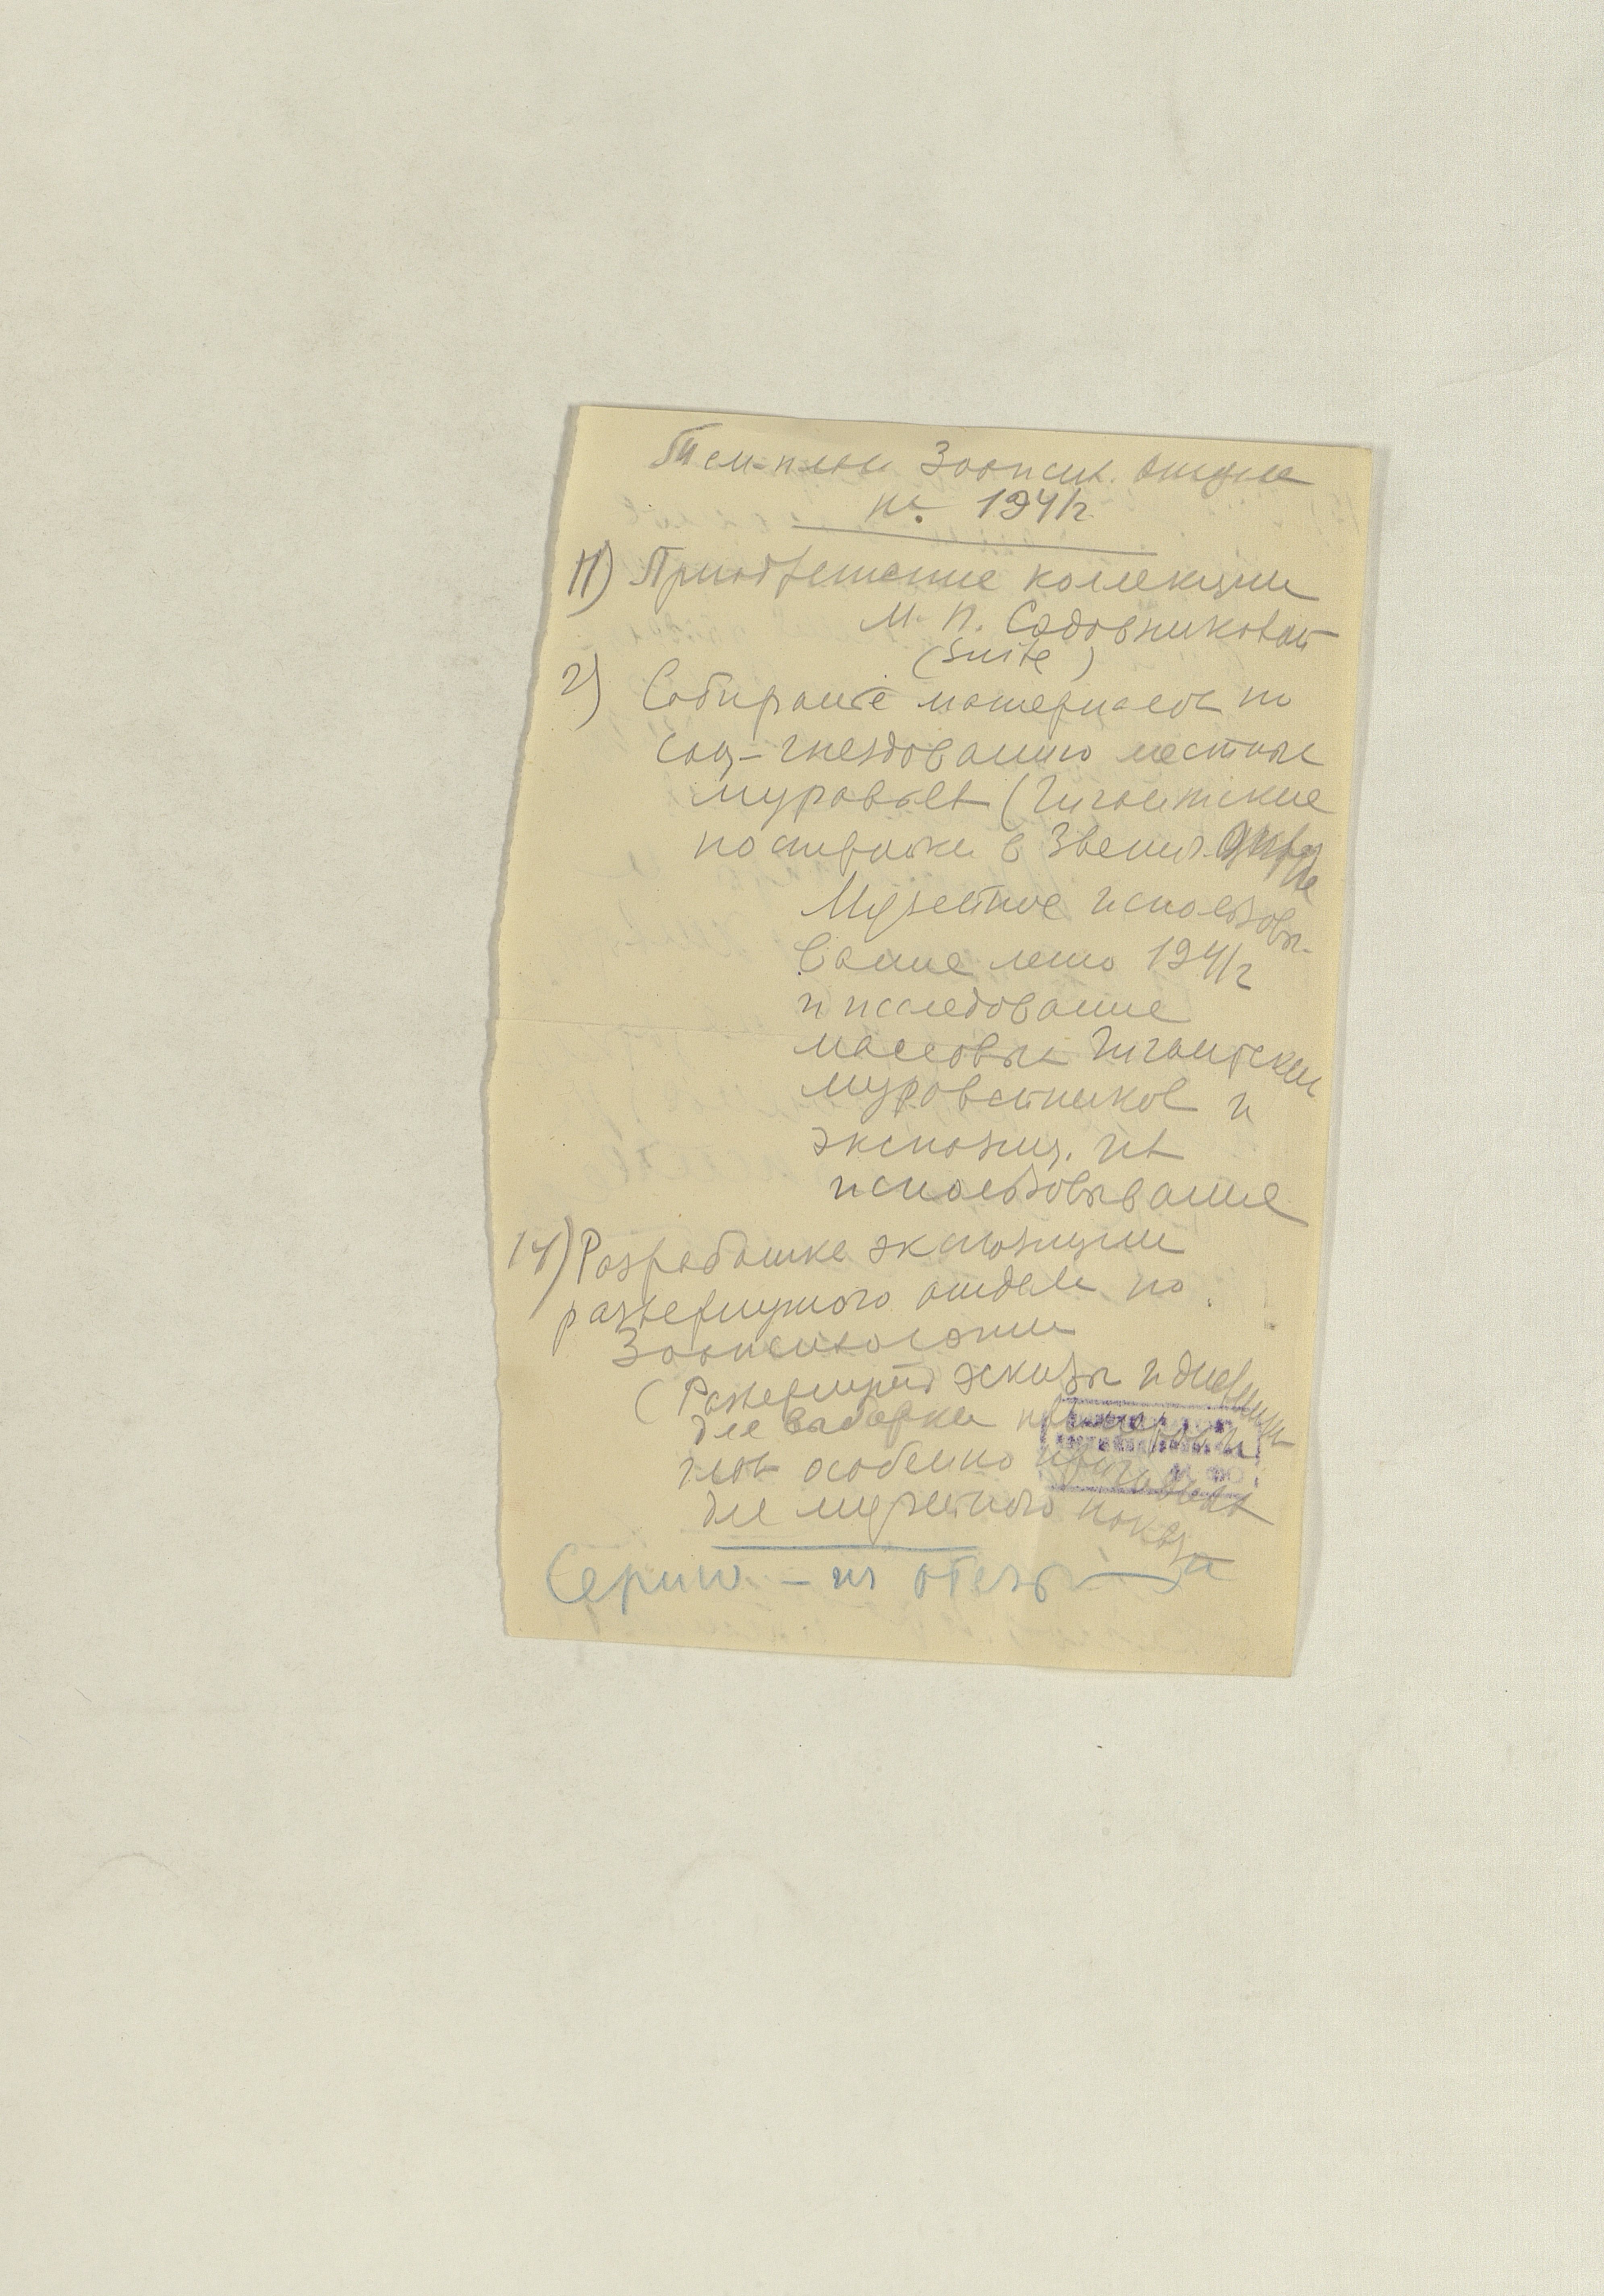 Тем-план Зоопсих. отдела
на 1941 г
1) Приобретение коллекции
М. П. Садовниковой
(Suite)
2) Собирание материалов по
соц-гнездованию местных
муравьев (Гигантские
постройки в Звениг.
Музейное использовы-
вание лето 1941 г
и исследование
массовых Гигантских
муравейников и
экспозиц. их
использовывание
14) Разработка экспозиции
развернутого отдела по
Зоопсихологии
(Развернутый эскизы и дневники
для выборки
тем особенно пригодных
для музейного показа
Серию – из